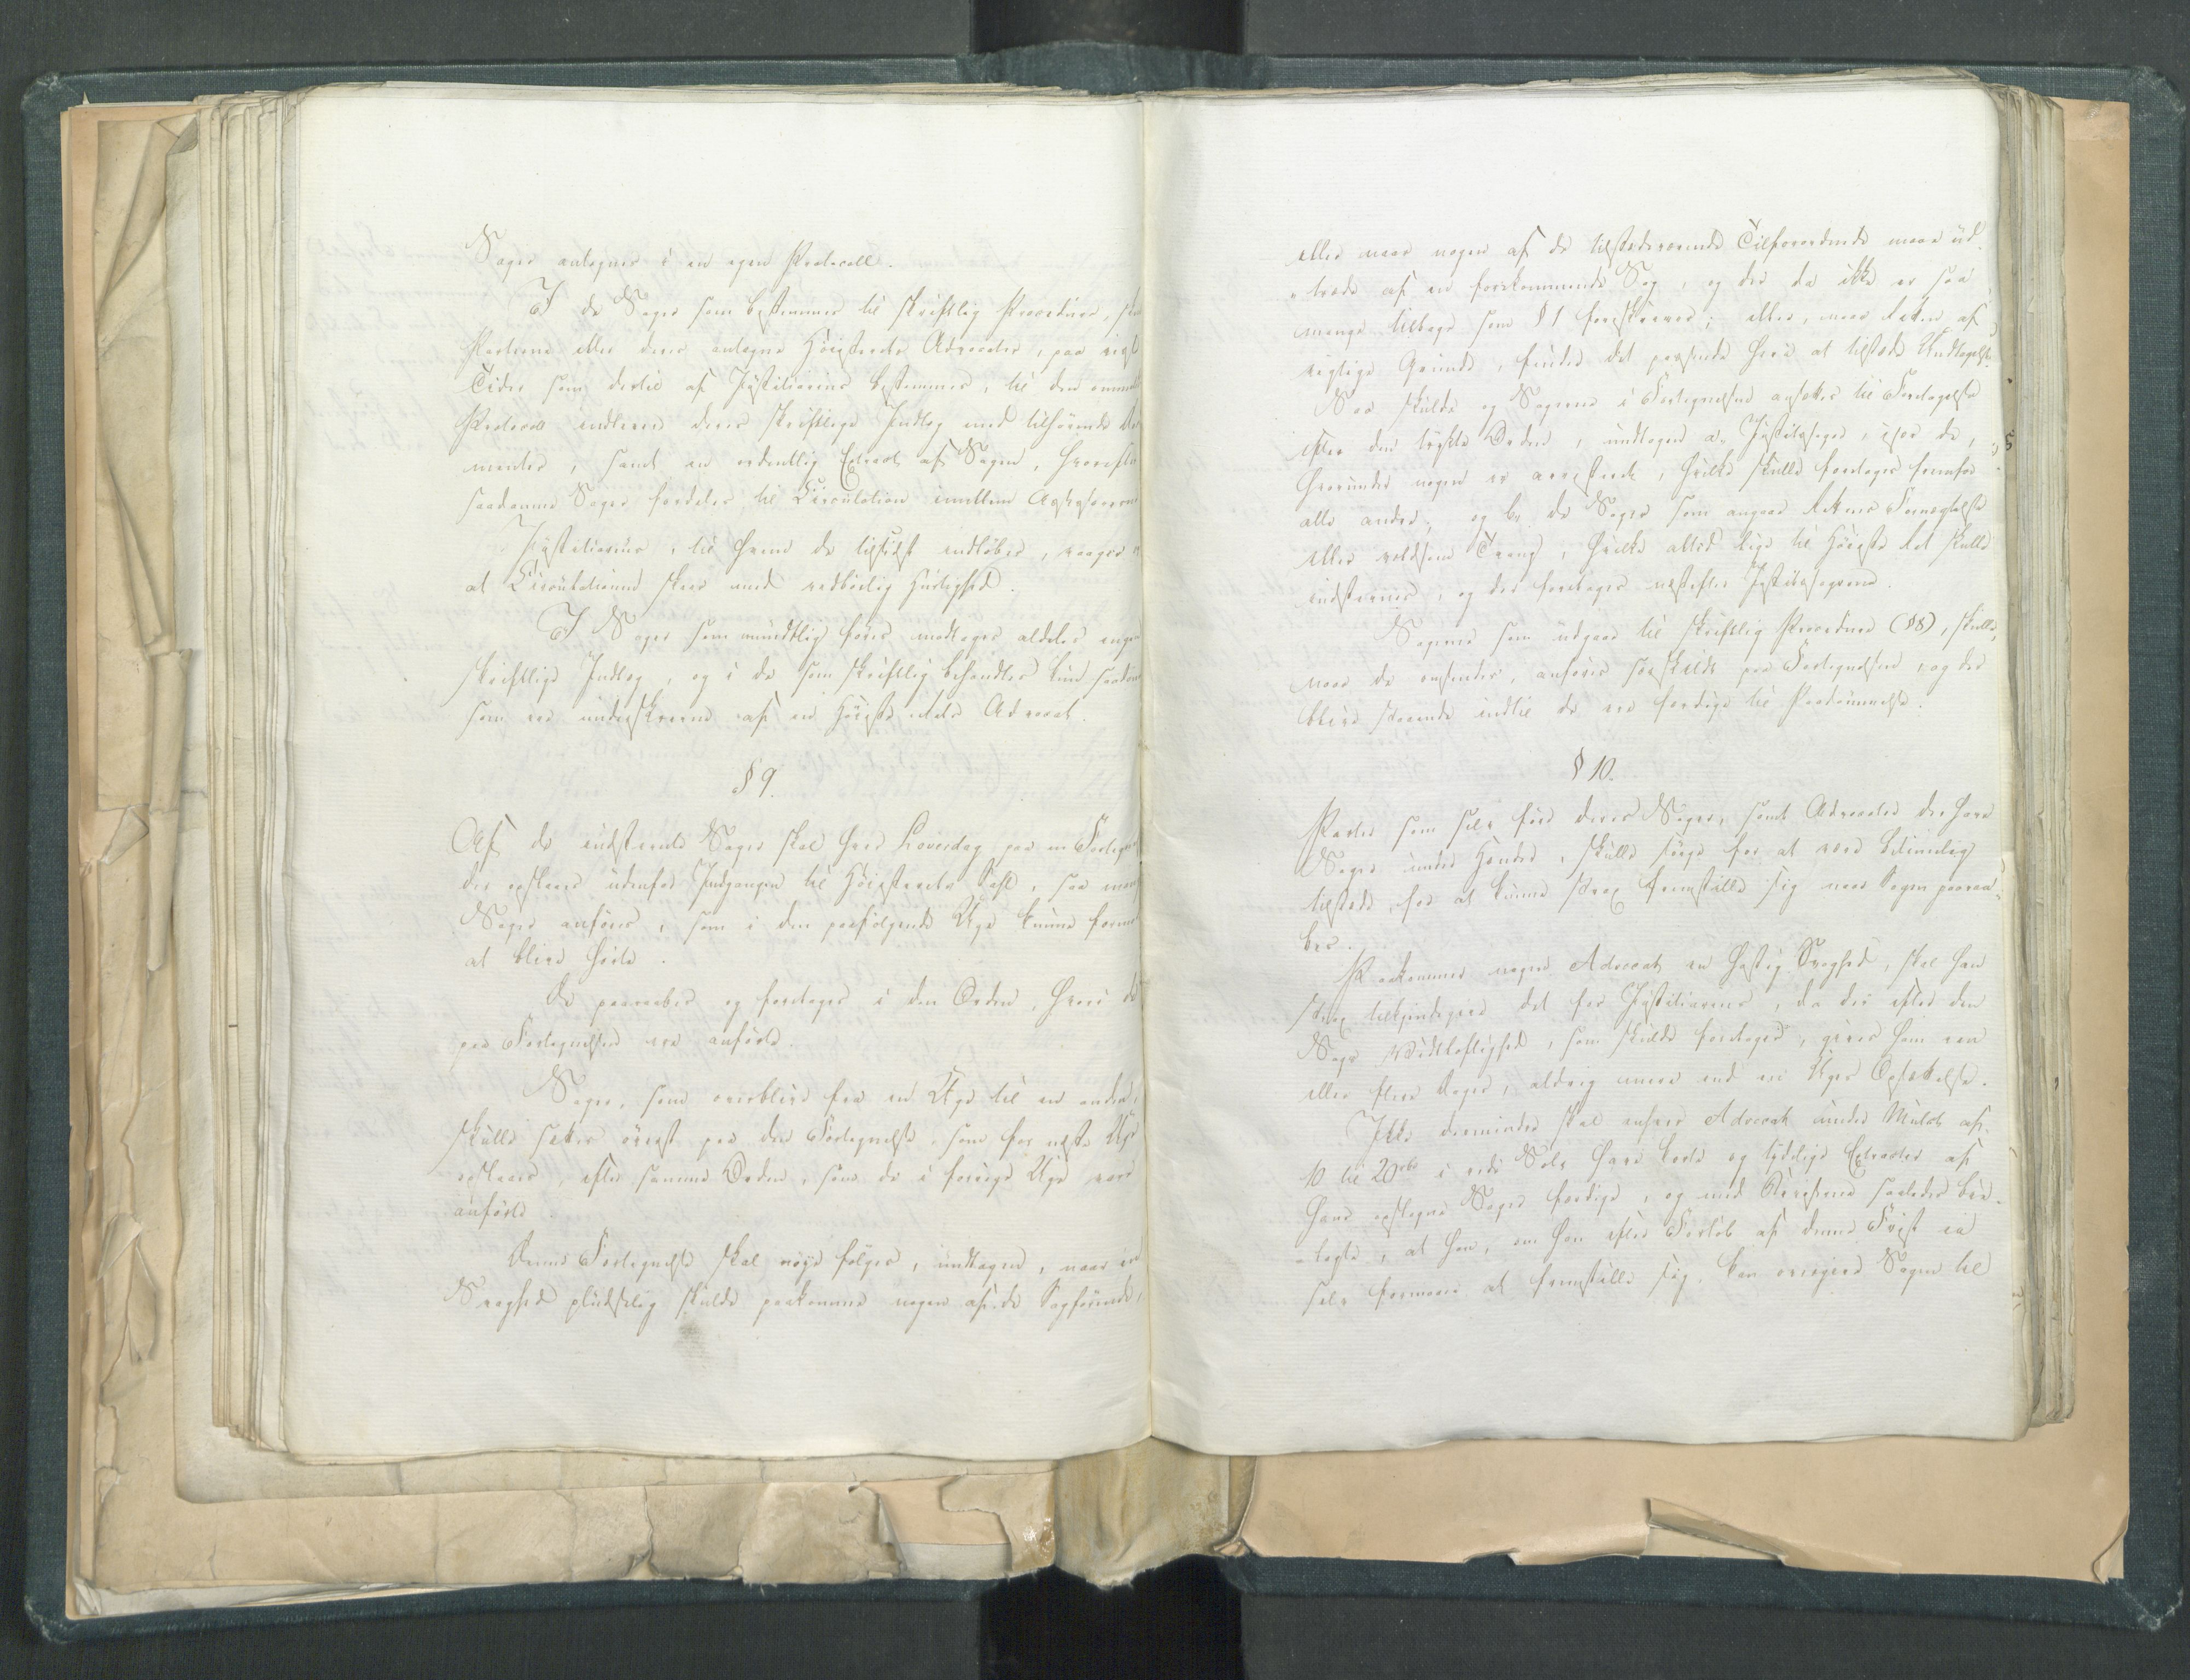 Sager antegnes i en egen Protocoll.
I de Sager som bestemmes til skriftlig Procedure,
Parterne eller deres antagne Höiesterets Advocater, paa
Tider som dertil af Justitiarius bestemmes, til den
Protocoll indlevere deres skriftlige Indlæg med tilhörende
menter, samt en ordentlig Extract af Sagen, hvorefter
saadanne Sager fordeles til Circulation imellem Assessorerne
Justitiarius, til hvem de tilsidst indlöber, vaager
at Circulationen skeer med tilbörlig Hurtighed.
I Sager som mundtlig föres modtages aldeles ingen
skriftlige Indlæg, og i de som skriftlig behandles kun saadanne
som ere underskrevne af en Höieste Rets Advocat.
§ 9.
Af de indstevnte Sager skal hver Löverdag paa en
der opslaaes udenfor Indgangen til Höiesterets Sahl, saa mange
Sager anföres, som i den paafölgende Uge kunne
at blive hörte.
De paaraabes og foretages i den Orden, hvori de
paa Fortegnelsen ere anförte.
Sager, som overblive fra en Uge til en anden,
skulle sættes överst paa den Fortegnelse, som for næste Uge
opslaaes, efter samme Orden, som de i forrige Uge vare
anförte.
Denne Fortegnelse skal nöye fölges, undtagen, naar en
Svaghed pludselig skulde paakomme nogen af de Sagförende,
eller naar nogen af de tilstedeværende Tilforordnede maae ud-
træde af en forekommende Sag, og der da ikke er saa
mange tilbage som § 1 foreskriver; eller, naar Retten af
vigtige Grunde, finder det passende heri at tilstede Undtagelse.
Saa skulde og Sagerne i Fortegnelsen ansættes til Foretagelse
efter den trykte Orden, undtagen a, Justitssager, især de,
hvorunder nogen er arresteret, hvilke skulle foretages fremfor
alle andre; og b, de Sager som angaae Rettens Fornegtelse
eller voldsom Trang, hvilke altid lige til Höieste Ret skulle
indstevnes, og der foretages næstefter Justitssagerne.
Sagerne som udgaae til skriftlig Procedure (§8), skulle,
naar de, anföres særskildt paa Fortegnelsen, og der
blive staaende indtil de ere færdige til Paadömmelse.
§ 10.
Parter som selv före deres Sager, samt Advocater der have
Sager under Hænder, skulle sörge for at være betimelig
tilstede, for at kunne strax fremstille sig naar Sagen paaraa-
bes.
Paakommer nogen Advocat en hastig Svaghed, skal han
strax tilkjendegive det for Justitiarius, da der efter den
Sags Vidtløftighed, som skulde foretages, gives ham een
eller flere Dages, aldrig mere end en Uges Opsættelse.
Ikke desmindre skal enhver Advocat under Mulct af
10 til 20 rbd i rede Sölv have korte og tydelige Extracter af
hans Sager færdige, og med Beviserne saaledes bi-
lagte, at han, om han efter Forlöb af denne Frist ei
selv formaaer at fremstille sig, kan overgive Sagen til